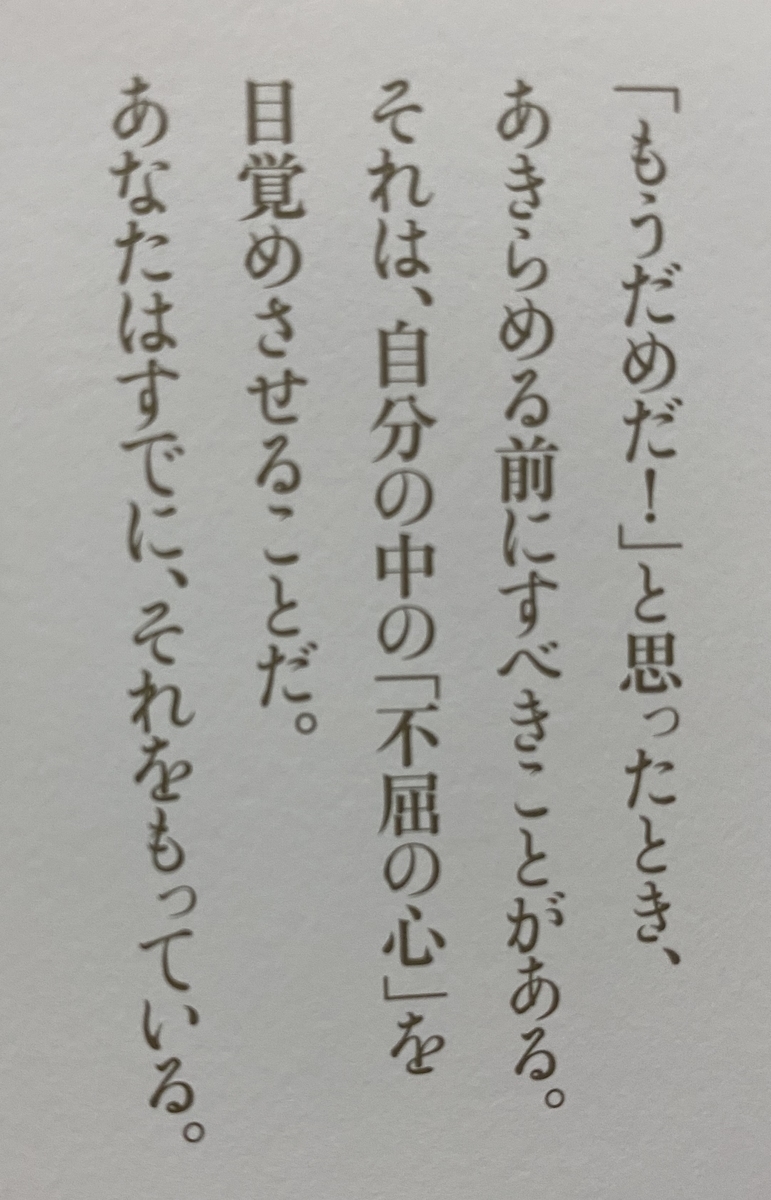 「もうだめだ！」と思ったとき、
あきらめる前にすべきことがある。
それは、自分の中の「不屈の心」を
目覚めさせることだ。
あなたはすでに、それをもっている。